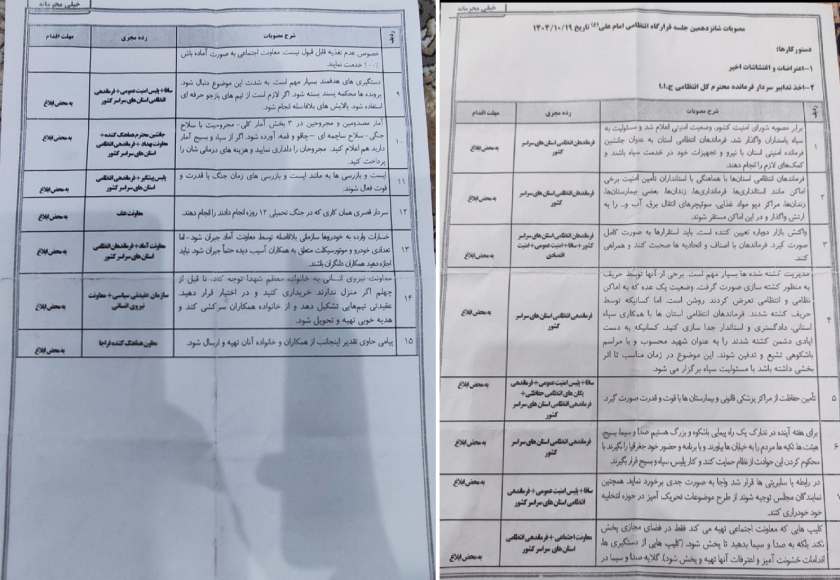 خیلی محرمانه
مصوبات شانزدهمین جلسه قرارگاه انتظامی امام علی(ع) تاریخ ۱۴۰۴/۱۰/۱۹
دستور کارها:
۱-اعتراضات و اغتشاشات اخیر
۲-اخذ تدابیر سردار فرمانده محترم کل انتظامی ج.ا.ا
ردیف
شرح مصوبات
رده مجری
مهلت اقدام
۱
برابر مصوبه شورای امنیت کشور، وضعیت امنیتی اعلام شد و مسئولیت به
سپاه پاسداران واگذار شد. فرماندهان انتظامی استان به عنوان جانشین
فرمانده امنیتی استان با نیرو و تجهیزات خود در خدمت سپاه باشند و
کمک‌های لازم را انجام دهند.
فرماندهان انتظامی استان های سراسر
کشور
به محض ابلاغ
۲
فرماندهان انتظامی استان‌ها با هماهنگی با استانداران تأمین امنیت برخی
اماکن مانند استانداری‌ها، فرمانداری‌ها، زندان‌ها، بعضی بیمارستان‌ها،
زندان‌ها، مراکز دپو مواد غذایی، سوئیچرهای انتقال برق، آب و.. را به
ارتش واگذار و در این اماکن مستقر شوند.
فرماندهان انتظامی استان های سراسر
کشور
به محض ابلاغ
۳
واکنش بازار دوباره تعیین کننده است. باید استقرارها به صورت کامل
صورت گیرد. فرماندهان با اصناف و اتحادیه ها صحبت کنند و همراهی
کنند.
فرماندهان انتظامی استان های سراسر
کشور + سافا + پلیس امنیت عمومی + امنیت
اقتصادی
به محض ابلاغ
۴
مدیریت کشته شده ها بسیار مهم است. برخی از آنها توسط حریف
به منظور کشته سازی صورت گرفت. وضعیت یک عده که به اماکن
نظامی و انتظامی تعرض کردند روشن است. اما کسانیکه توسط
حریف کشته شدند. فرماندهان انتظامی استان ها با همکاری سپاه
استانی، دادگستری و استاندار جدا سازی کنید. کسانیکه به دست
ایادی دشمن کشته شدند را به عنوان شهید محسوب و با مراسم
باشکوهی تشیع و تدفین شوند. این موضوع در زمان مناسب تا اثر
بخشی داشته باشد با مسئولیت سپاه برگزار می شود.
فرماندهی انتظامی استان های سراسر
کشور
به محض ابلاغ
۵
تأمین حفاظت از مراکز پزشکی قانونی و بیمارستان ها با قوت و قدرت صورت گیرد.
سافا + پلیس امنیت عمومی + فرماندهی
یگان های انتظامی حفاظتی +
فرماندهی انتظامی استان های سراسر
کشور
به محض ابلاغ
۶
برای هفته آینده در تدارک یک راه پیمایی باشکوه و بزرگ هستیم صدا و سیما بسیج
هیئت ها تکیه ها مردم را به خیابان ها بیاورند و با برنامه و حضور خود جغرافیا را بگیرند با
محکوم کردن این حوادث از نظام حمایت کنند و کنار پلیس، سپاه و بسیج قرار بگیرند.
فرماندهی انتظامی استان های سراسر
کشور
به محض ابلاغ
در رابطه با سلبریتی ها قرار شد واجا به صورت جدی برخورد نماید. همچنین
نمایندگان مجلس توجیه شوند از طرح موضوعات تحریک آمیز در حوزه انتخابیه
خود خودداری کنند.
سافا + پلیس امنیت عمومی + فرماندهی
انتظامی استان های سراسر کشور
به محض ابلاغ
کلیپ هایی که معاونت اجتماعی تهیه می کند فقط در فضای مجازی پخش
نکند بلکه به صدا و سیما بدهید تا پخش شود. (کلیپ هایی از دستگیری ها،
اقدامات خشونت آمیز و اعترافات آنها تهیه و پخش شود). گلایه صدا و سیما در
معاونت اجتماعی + فرماندهی انتظامی
استان های سراسر کشور
به محض ابلاغ
خیلی محرمانه
ردیف
شرح مصوبات
رده مجری
مهلت اقدام
خصوص عدم تغذیه قابل قبول نیست. معاونت اجتماعی به صورت آماده باش
۱۰۰٪ خدمت نمایند.
۹
دستگیری های هدفمند بسیار مهم است. به شدت این موضوع دنبال شود.
پرونده ها محکمه پسند بسته شود. اگر لازم است از تیم های بازجو حرفه ای
استفاده شود. پالایش های بلافاصله انجام شود.
سافا + پلیس امنیت عمومی + فرماندهی
انتظامی استان های سراسر کشور
به محض ابلاغ
۱۰
آمار مصدومین و مجروحین در ۳ بخش آمار کلی - مجروحیت با سلاح
جنگی - سلاح ساچمه ای - چاقو و قمه، آورده شود. اگر از سپاه و بسیج آمار
دارید هم اعلام کنید. مجروحان را دلداری نمایید و هزینه های درمانی شان را
پرداخت کنید.
جانشین محترم هماهنگ کننده +
معاونت بهداد + فرماندهی انتظامی
استان های سراسر کشور
به محض ابلاغ
۱۱
ایست و بازرسی ها به مانند ایست و بازرسی های زمان جنگ با قدرت و
قوت فعال شوند.
پلیس پیشگیر + فرماندهی انتظامی
استان های سراسر کشور
به محض ابلاغ
۱۲
سردار قصری همان کاری که در جنگ تحمیلی ۱۲ روزه انجام دادند را انجام دهند.
معاونت طب
به محض ابلاغ
۱۳
خسارات وارده به خودروها سازمانی بلافاصله توسط معاونت آماد جبران شود - اما
تعدادی خودرو و موتورسیکلت متعلق به همکاران آسیب دیده حتماً جبران شود. نباید
اجازه دهید همکاران دلنگران باشند.
معاونت آماد + فرماندهی انتظامی
استان های سراسر کشور
به محض ابلاغ
۱۴
معاونت نیروی انسانی به خانواده معظم شهدا توجه کند، تا قبل از
چهلم اگر منزل ندارند خریداری کنید و در اختیار قرار دهید.
عقیدتی تیم‌هایی تشکیل دهد و از خانواده همکاران سرکشی کند و
هدیه خوبی تهیه و تحویل شود.
سازمان عقیدتی سیاسی + معاونت
نیروی انسانی
به محض ابلاغ
۱۵
پیامی حاوی تقدیر اینجانب از همکاران و خانواده آنان تهیه و ارسال شود.
معاون هماهنگ کننده فراجا
به محض ابلاغ